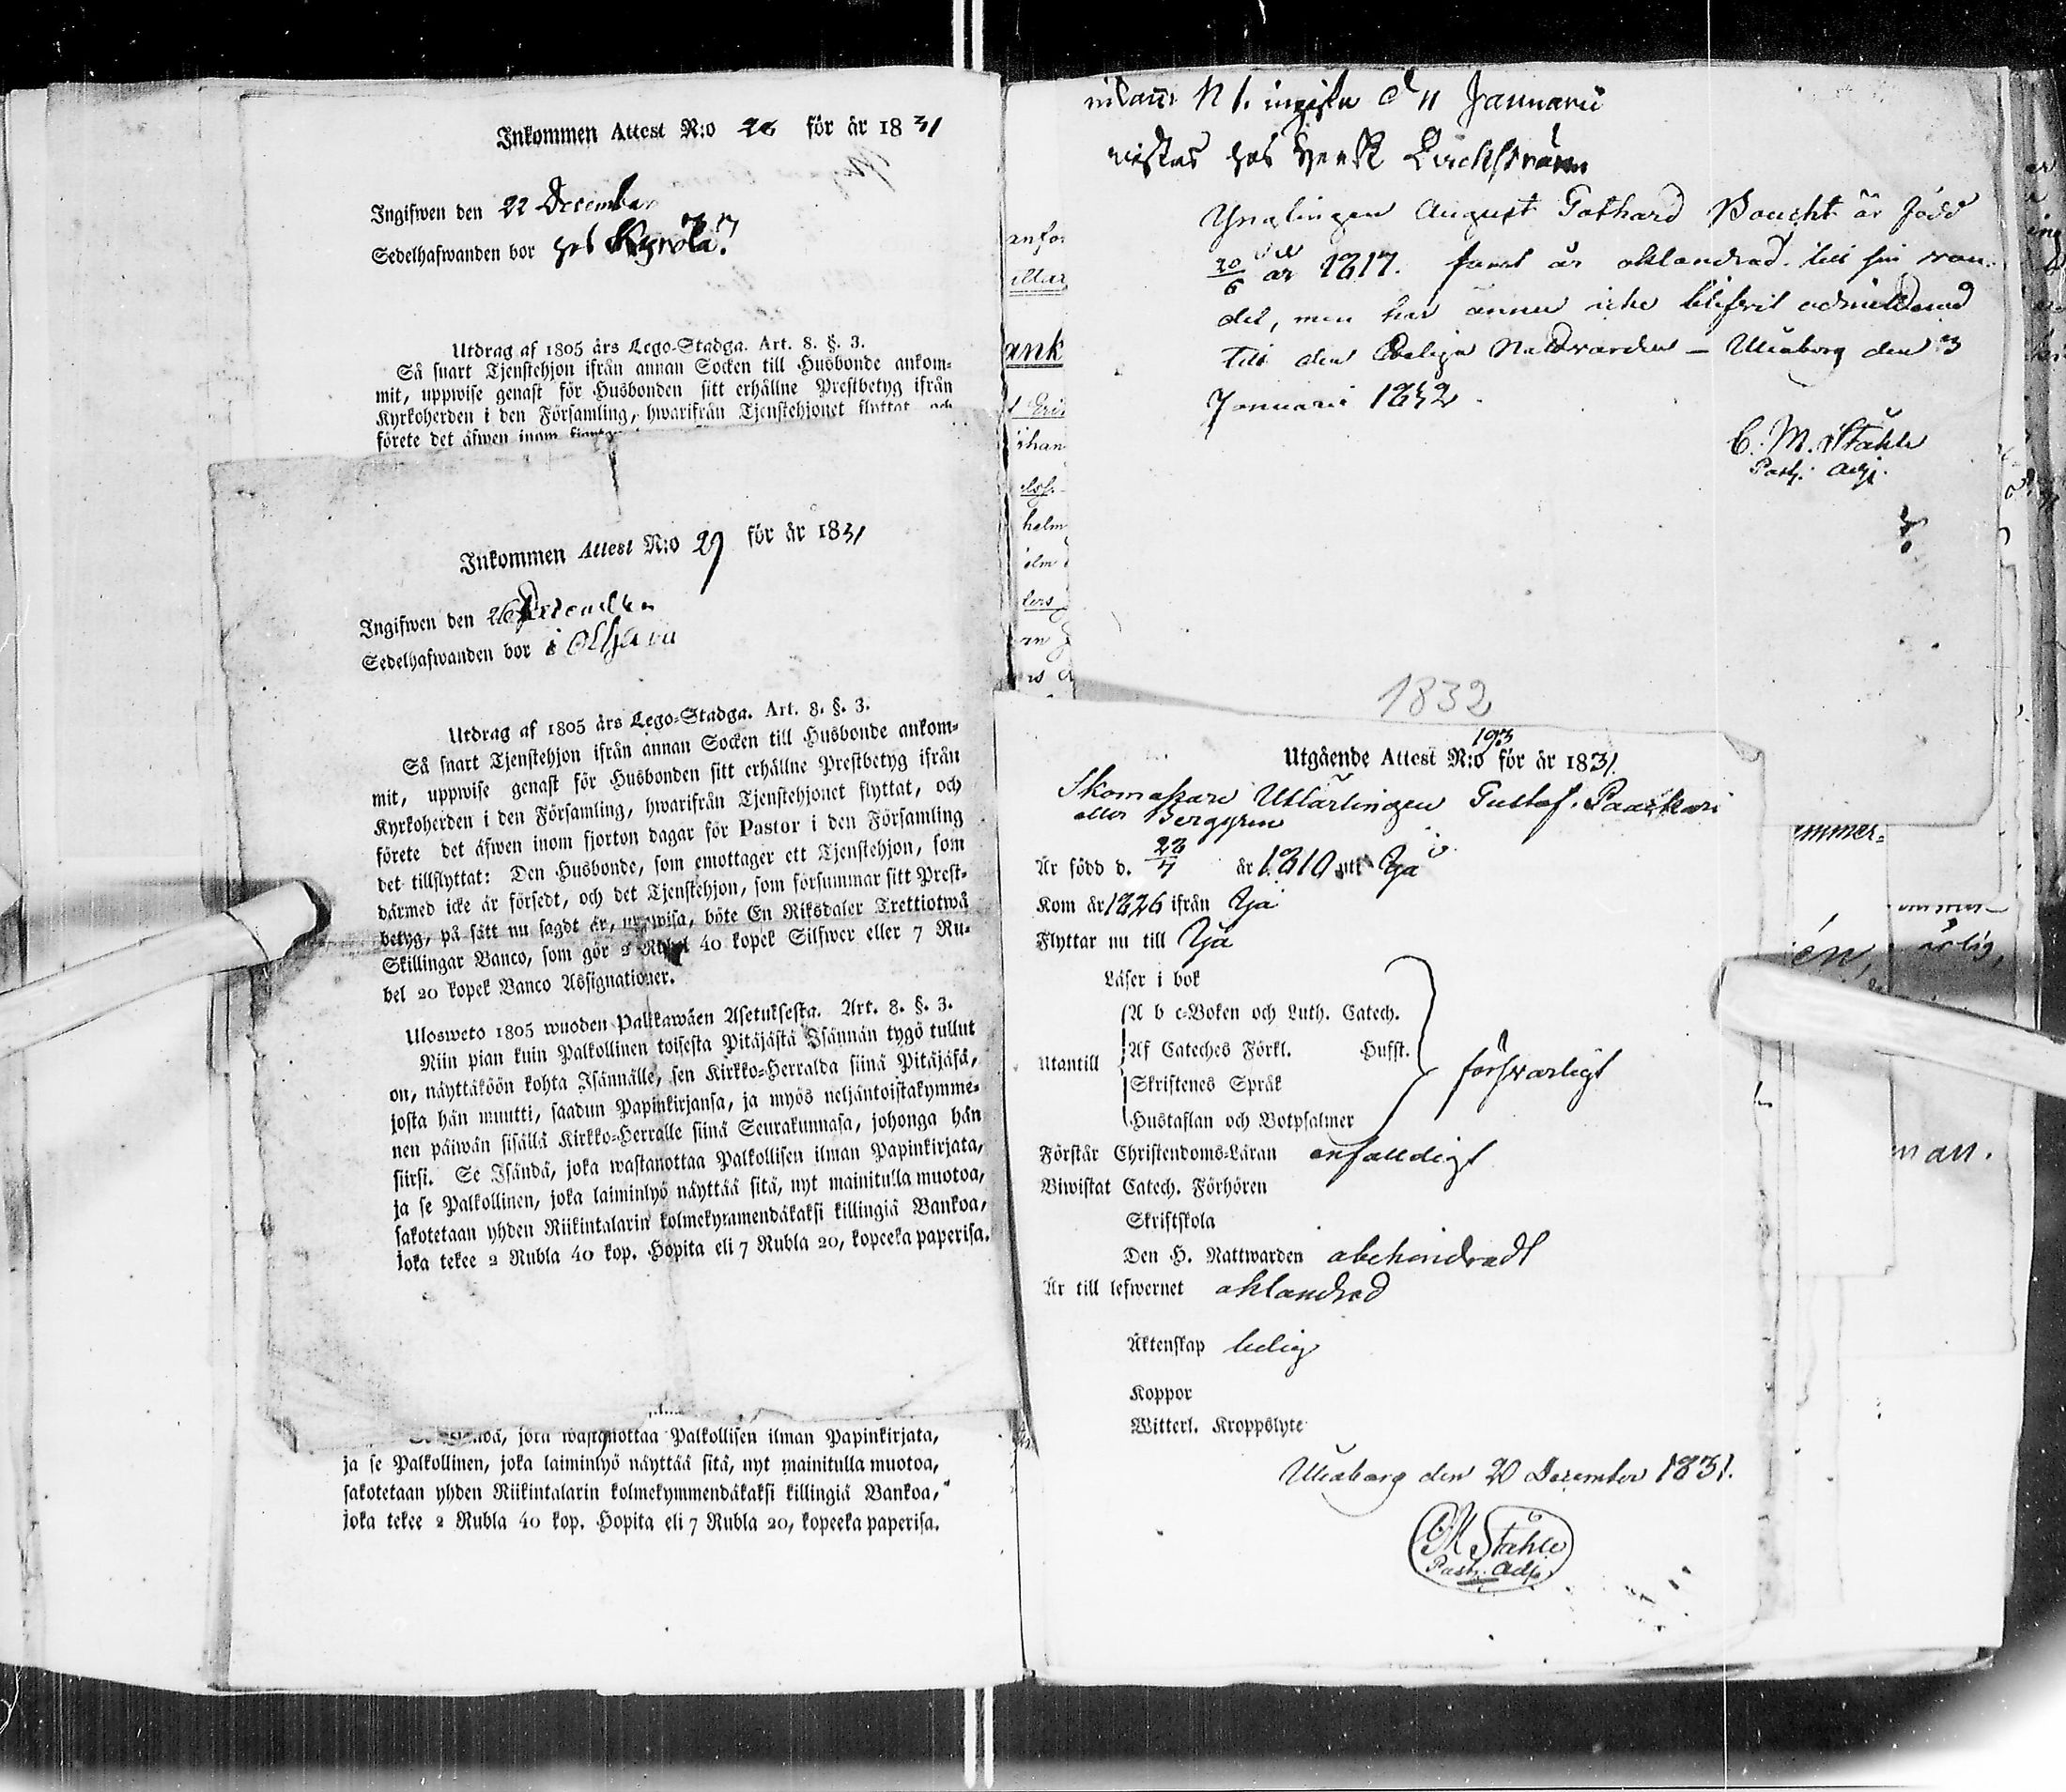 Inkommen Attest N:o 26 för år 1831
Ingifwen den 22 December
Sedelhafwanden bor hos
Utdrag af 1805 års Lego-Stadga. Art. 8. §. 3.
Så snart Tjenstehjon ifrån annan Socken till Husbonde ankom-
mit, uppwise genast för Husbonden sitt erhållne Prestbetyg ifrån
Kyrkoherden i den Församling, hwarifrån Tjenstehjonet flyttat och
förete det äfwen inom
Inkommen Attest N:o 27 för år 1831
Ingifwen den 26 December
Sedelhafwanden bor i
Utdrag af 1805 års Lego-Stadga. Art. 8. §. 3.
Så snart Tjenstehjon ifrån annan Socken till Husbonde ankom-
mit, uppwise genast för Husbonden sitt erhållne Prestbetyg ifrån
Kyrkoherden i den Församling, hwarifrån Tjenstehjonet flyttat, och
förete det äfwen inom fjorton dagar för Pastor i den Församling
det tillflyttat: Den Husbonde, som emottager ett Tjenstehjon, som
därmed icke är försedt, och det Tjenstehjon, som försummar sitt Prest-
betyg, på sätt nu sagdt är, uppwisa, böte En Riksdaler Trettiotwå
Skillingar Banco, som gör 2 Rubel 40 kopek Silfwer eller 7 Ru-
bel 20 kopek Banco Assignationer.
Ulosweto 1805 wuoden Palkkawäen Asetuksesta. Art. 8. §. 3.
Niin pian kuin Palkollinen toisesta Pitäjästä Isännän tygö tullut
on, näyttäköön kohta Isännälle, sen Kirkko-Herralda siinä Pitäjäsä,
josta hän muutti, saadun Papinkirjansa, ja myös neljäntoistakymme-
nen päiwän sisällä Kirkko-Herralle siinä Seurakunnasa, johonga hän
siirsi. Se Isändä, joka wastanottaa Palkollisen ilman Papinkirjata,
ja se Palkollinen, joka laiminlyö näyttää sitä, nyt mainitulla muotoa,
sakotetaan yhden Riikintalarin kolmekymmendäkaksi killingiä Bankoa,
joka tekee 2 Rubla 40 kop. Hopita eli 7 Rubla 20, kopeeka paperisa.
joka wastanottaa Palkollisen ilman Papinkirjata,
ja se Palkollinen, joka laiminlyö näyttää sitä, nyt mainitulla muotoa,
sakotetaan yhden Riikintalarin kolmekymmendäkaksi killingiä Bankoa,
joka tekee 2 Rubla 40 kop. Hopita eli 7 Rubla 20, kopeeka paperisa.
N 1. d 11 Januarii
vistas hos
Ynglingen August Gothard Boucht är född
20/6 år 1817. samt är oklandrad till sin van-
del, men har ännu icke blifvit admitterad
till den Heliga Nattvarden - Uleåborg den 3
Januarii 1832.
C. M. Ståhle
Past: Adj.
1832
193
Utgående Attest N:o för år 1831.
Skomakare Utlärlingen Gustaf Paaskari
eller Berggren
Är född d. 28/7 år 1810 uti Ijå
Kom år 1826 ifrån Ijå
Flyttar nu till Ijå
Läser i bok
Utantill
A b c-Boken och Luth. Catech.
Af Cateches Förkl. Hufst.
Skriftenes Språk
Hustaflan och Botpsalmer
försvarligt
Förstår Christendoms-Läran enfalldigt
Biwistat Catech. Förhören
Skriftskola
Den H. Nattwarden obehindradt
Är till lefwernet oklandrad
Äktenskap ledig
Koppor
Witterl. Kroppslyte
Uleåborg den 20 December 1831.
CM Ståhle
Past: Adj.